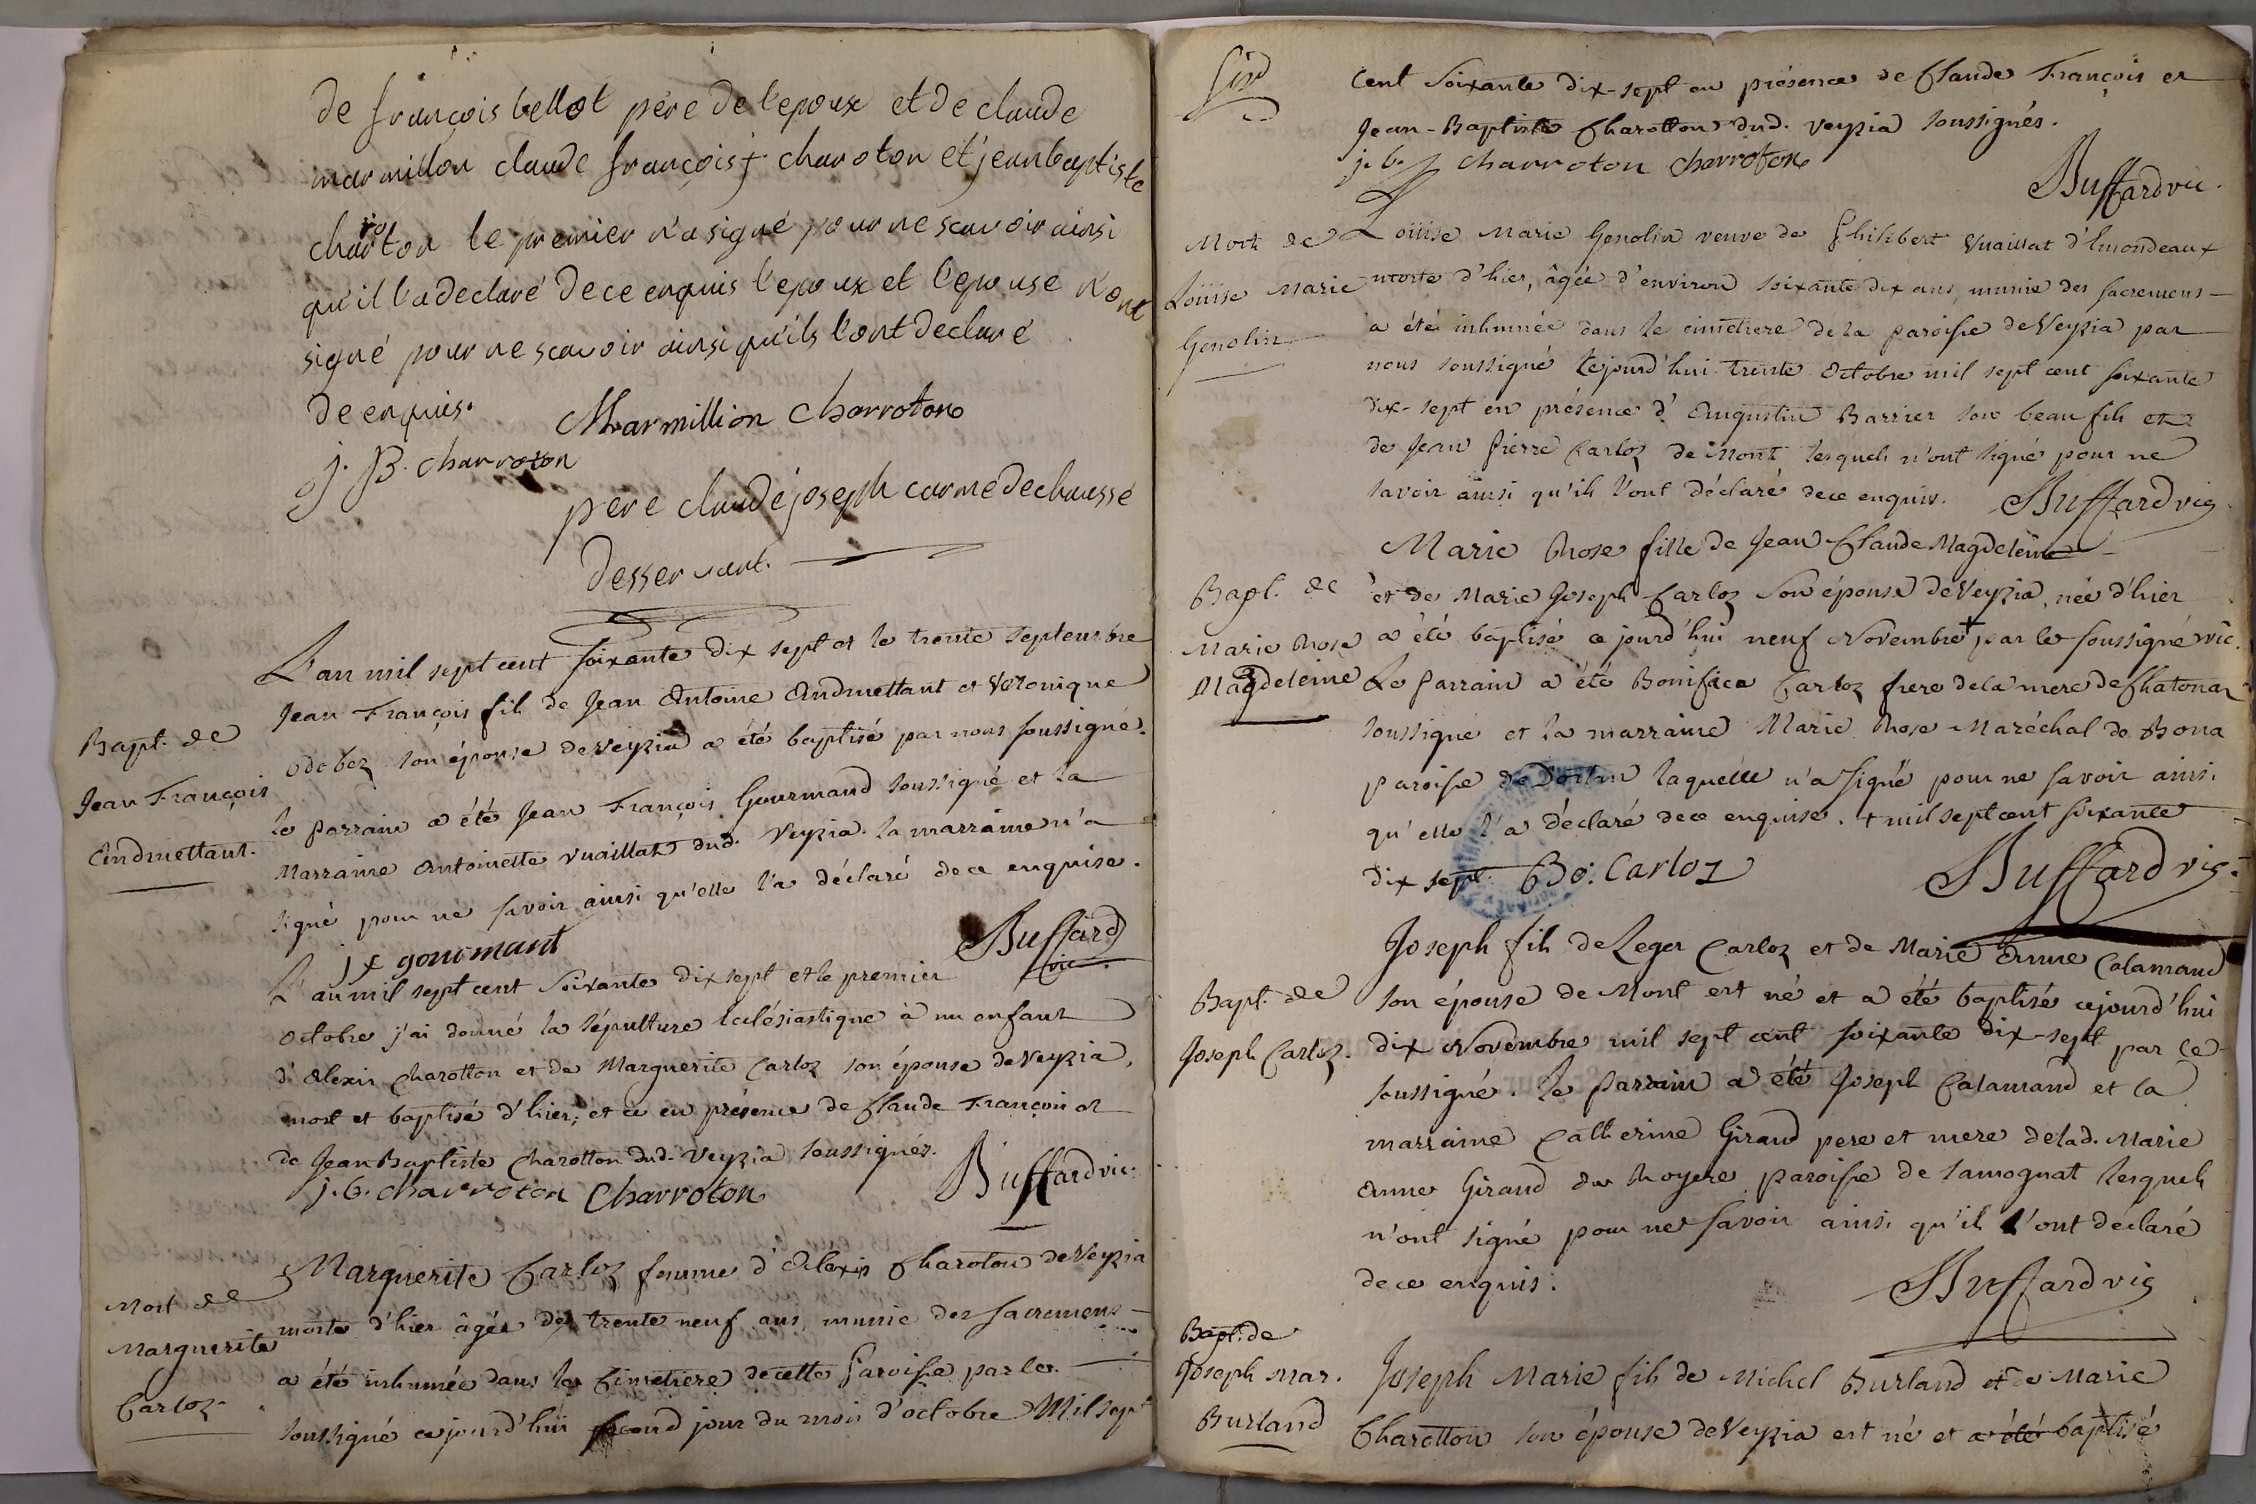 de françois bellot père de l'epoux et de claude
marmillon claude françois j. charoton et jeanbaptiste
charoton le premier n'a signé pour ne scavoir ainsi
qu'il l'a declaré de ce enquis l'epoux et l'epouse n'ont
signé pour ne scavoir ainsi qu'ils l'ont declaré
de enquis.
Marmillion Charroton
j. B. charroton
père claude joseph carme dechaussé
desservant.
L'an mil sept cent soixante dix sept et le trente septembre
Jean François fils de Jean Antoine Andmettant et Véronique
Bapt. de
Jean François
Andmettant.
odobez son épouse de Veyzia a été baptisé par nous soussigné.
le parrain a été Jean François Gourmand soussigné et la
Marraine Antoinette Vuaillat dud. Veyzia. la marraine n'a
signé pour ne savoir ainsi qu'elle l'a déclaré de ce enquise.
j f gourmant
Buffard
vic.
L'an mil sept cent soixante dix sept et le premier
octobre j'ai donné la sépulture éclésiastique à un enfant
d'Alexis Charotton et de Marguerite Carloz son épouse de Veyzia,
mort et baptisé d'hier, et ce en présence de Claude François et
de Jean Baptiste Charotton dud. Veyzia soussignés.
j. b. charroton Charroton
Buffard vic.
Mort de
Marguerite
Carloz.
Marguerite Carloz femme d'Alexis Charoton de Veyzia
morte d'hier âgée de trente neuf ans, munie des sacremens
a été inhumée dans le cimetiere de cette Paroisse par le
soussigné cejourd'hui second jour du mois d'octobre Mil sept
cent soixante dix-sept en présence de Claude François et
Jean-Baptiste Charotton dud. Veyzia soussignés.
j. b. charroton Charroton
Buffard vic.
Mort de
Loüise Marie
Genolin
Loüise Marie Genolin veuve de Philibert Vuaillat d'Emondeaux
morte d'hier, âgée d'environ soixante dix ans, munie des sacremens
a été inhumée dans le cimetiere de la paroisse de Veyzia par
nous soussigné cejourd'hui trente octobre mil sept cent soixante
dix-sept en présence d'Augustin Barrier son beau fils et
de Jean Pierre Carloz de Mont lesquels n'ont signé pour ne
savoir ainsi qu'ils l'ont déclaré de ce enquis.
Buffard vic
Bapt. de
Marie Rose
Magdeleine
Marie Rose fille de Jean Claude Magdeleine
et de Marie Joseph Carloz son épouse de Veyzia, née d'hier
a été baptisé cejourd'hui neuf Novembre + par le soussigné vic.
Le Parrain a été Boniface Carloz frere de la mere de Chatonax
soussigné et la marraine Marie Rose Maréchal de Bona
paroisse de Dortan laquelle n'a signé pour ne savoir ainsi
qu'elle l'a déclaré de ce enquise. + mil sept cent soixante
dix sept.
Bo: Carloz
Buffard vic.
Bapt. de
Joseph Carloz.
Joseph fils de Leger Carloz et de Marie Anne Calamand
son épouse de Mont est né et a été baptisé cejourd'hui
dix Novembre mil sept cent soixante dix-sept par le
soussigné. Le Parrain a été Joseph Calamand et la
marraine Catherine Giraud pere et mere de lad. Marie
Anne Giraud de Royere paroisse de Samognat lesquels
n'ont signé pour ne savoir ainsi qu'il l'ont déclaré
de ce enquis.
Buffard vic
Bapt. de
Joseph Mar.
Burland
Joseph Marie fils de Michel Burland et de Marie
Charotton son épouse de Veyzia est né et a été baptisé